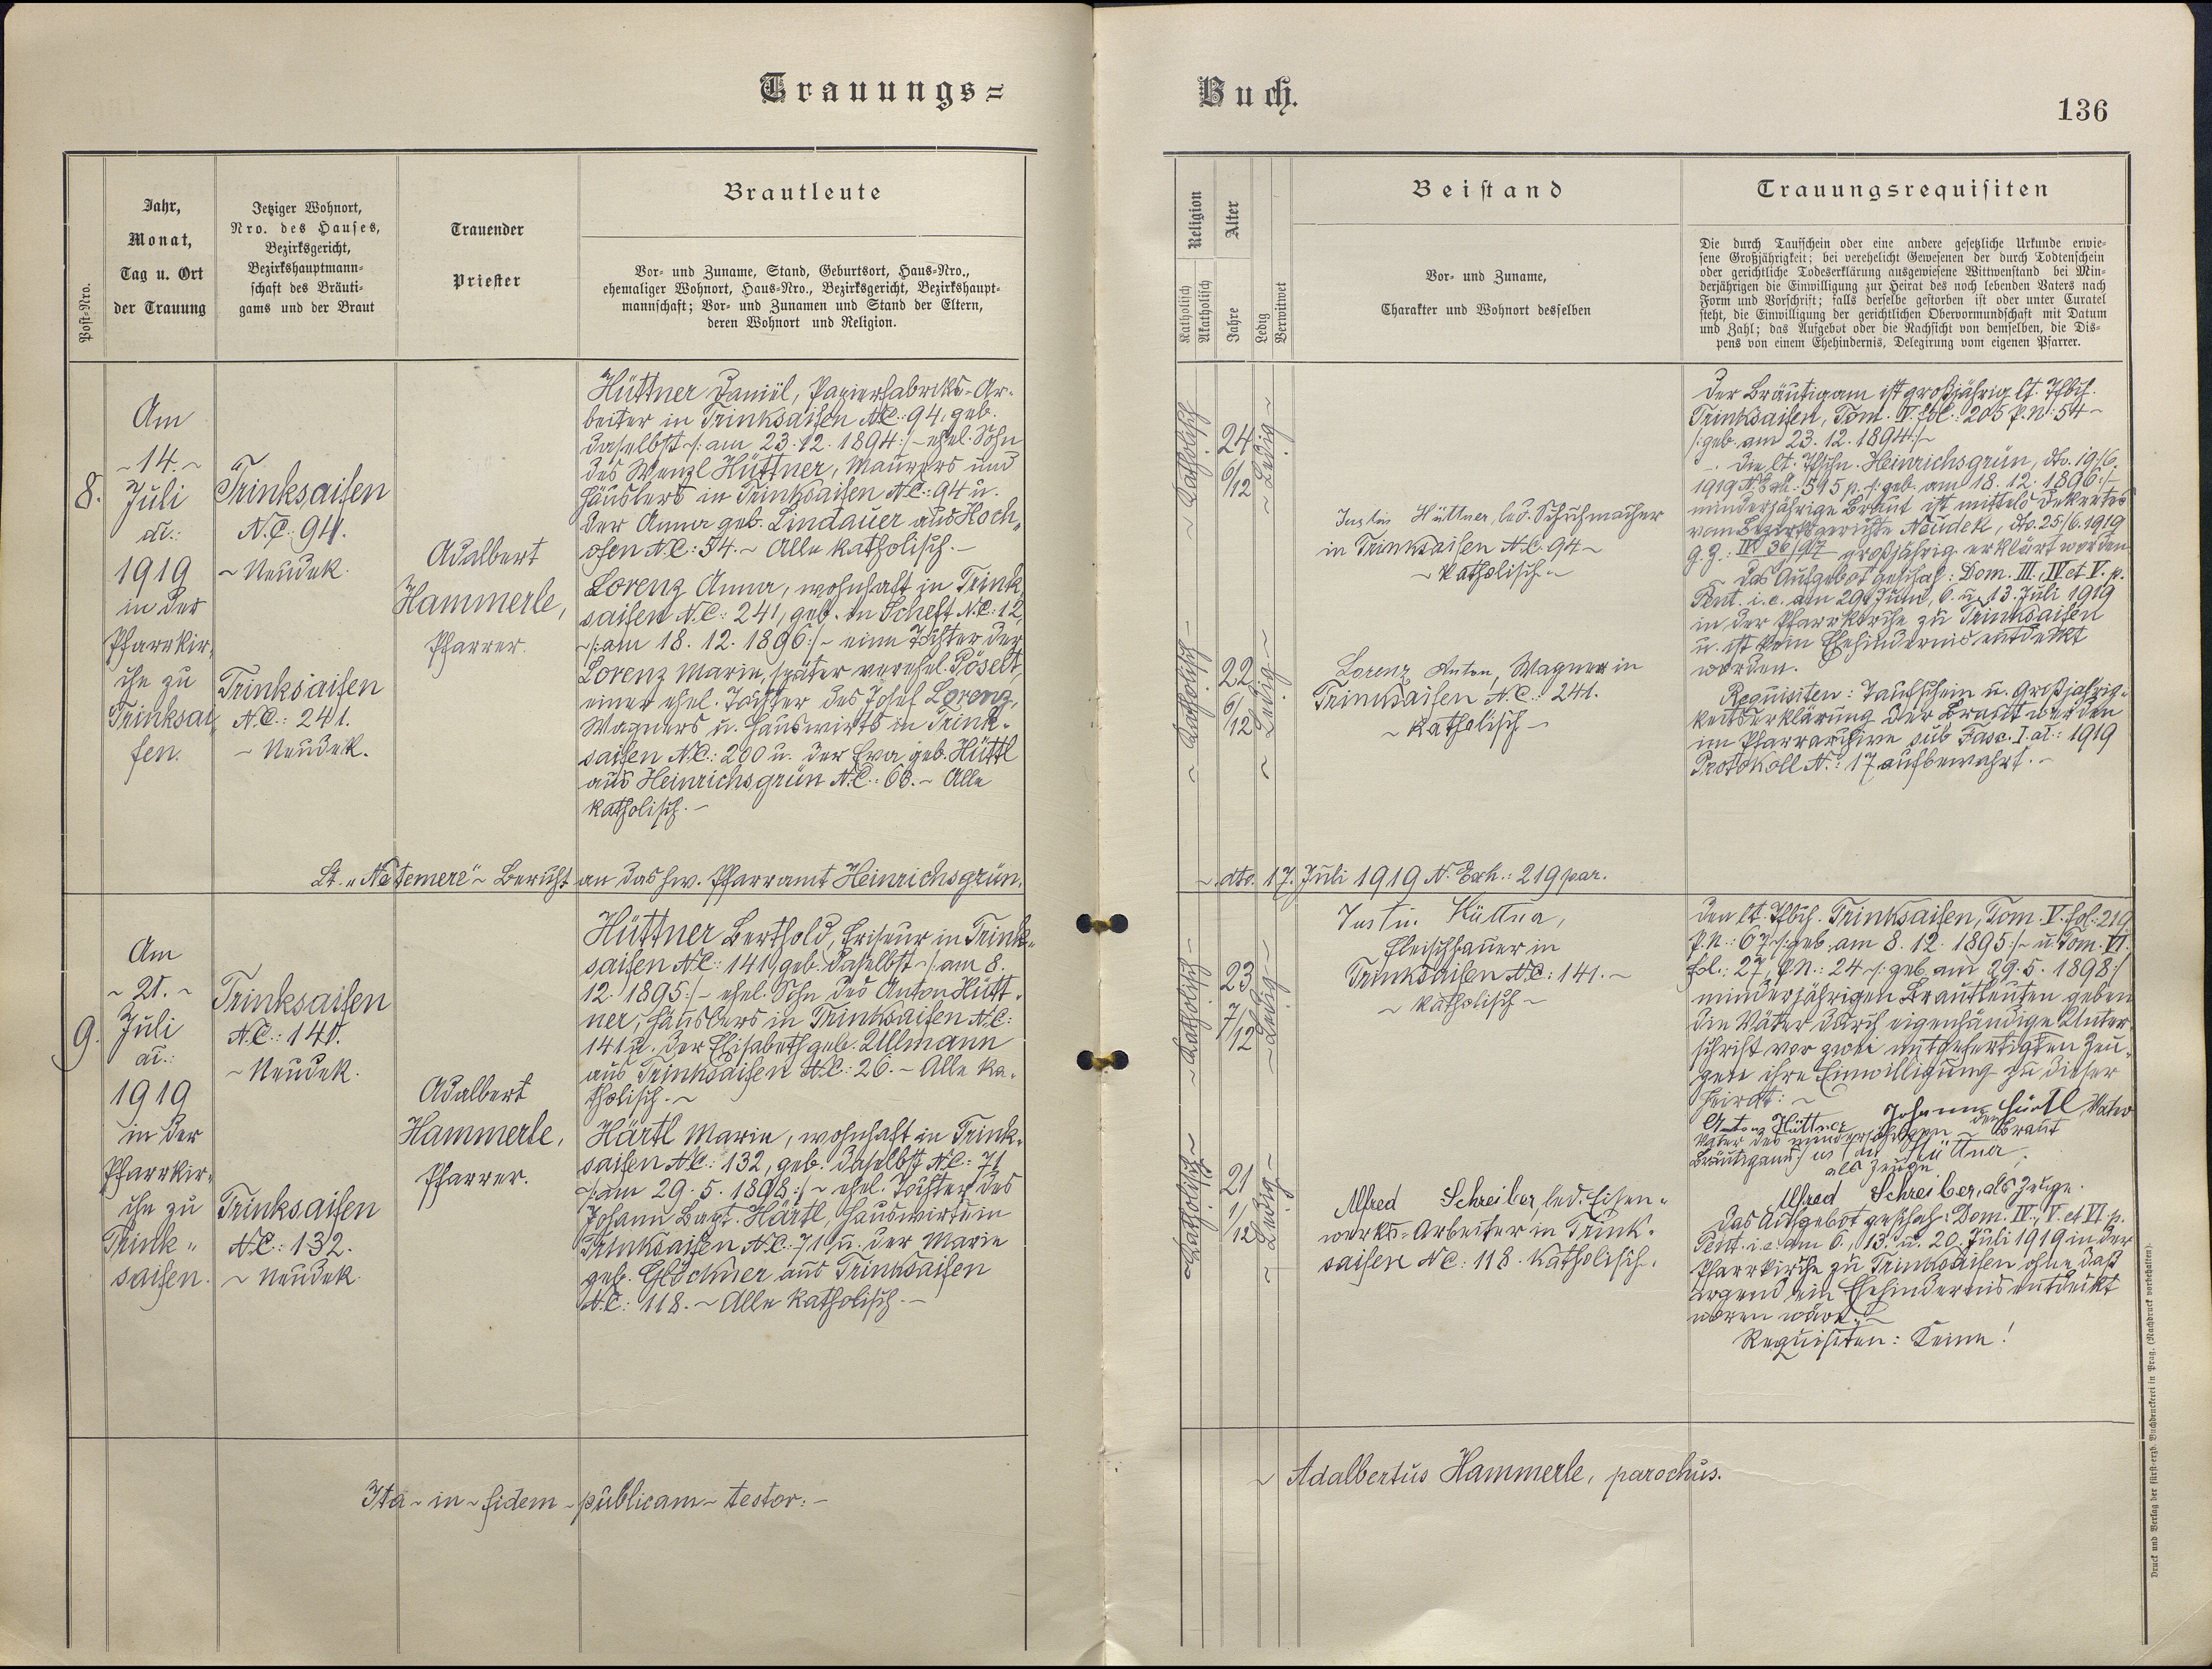 Trauungs=
Buch.
136
Post-Nro.
Jahr,
Monat,
Tag u. Ort
der Trauung
Jetziger Wohnort,
Nro. des Hauses,
Bezirksgericht,
Bezirkshauptmann-
schaft des Bräuti-
gams und der Braut
Trauender
Priester
Brautleute
Vor- und Zuname, Stand, Geburtsort, Haus-Nro.,
ehemaliger Wohnort, Haus-Nro., Bezirksgericht, Bezirkshaupt-
mannschaft; Vor- und Zunamen und Stand der Eltern,
deren Wohnort und Religion.
Religion
Katholisch
Akatholisch
Alter
Jahre
Ledig
Verwitwet
Beistand
Vor- und Zuname,
Charakter und Wohnort desselben
Trauungsrequisiten
Die durch Taufschein oder eine andere gesetzliche Urkunde erwie-
sene Großjährigkeit; bei verehelicht Gewesenen der durch Todtenschein
oder gerichtliche Todeserklärung ausgewiesene Wittwenstand bei Min-
derjährigen die Einwilligung zur Heirat des noch lebenden Vaters nach
Form und Vorschrift; falls derselbe gestorben ist oder unter Curatel
steht, die Einwilligung der gerichtlichen Obervormundschaft mit Datum
und Zahl; das Aufgebot oder die Nachsicht von demselben, die Dis-
pens von einem Ehehindernis, Delegirung vom eigenen Pfarrer.
8.
Am
~ 14. ~
Juli
a.:
1919
in der
Pfarrkir„
che zu
Trinksai„
fen.
Trinksaifen
N.C. 94.
~ Neudek.
Trinksaifen
N.C.: 241.
~ Neudek.
Adalbert
Hammerle,
Pfarrer.
Hüttner Daniel, Papierfabriks-Ar-
beiter in Trinksaifen N.C.: 94, geb.
daselbst /: am 23.12.1894:/ ~ ehel. Sohn
des Wenzl Hüttner, Maurers und
Häuslers in Trinksaifen N.C.: 94 u.
der Anna geb. Lindauer aus Hoch„
ofen N.C.: 54. ~ Alle katholisch. ~
Lorenz Anna, wohnhaft in Trink„
saifen N.C.: 241, geb. in Scheft N.C.: 12,
~/: am 18.12.1896:/ ~ eine Tochter der
Lorenz Marie, später verehel. Pöselt,
einer ehel. Tochter des Josef Lorenz,
Wagners u. Hauswirts in Trink-
saifen N.C.: 200 u. der Eva geb. Hüttl
aus Heinrichsgrün N.C.: 63. ~ Alle
katholisch. ~
~ Katholisch ~
24
6/12
~ Ledig ~
~ Katholisch ~
22
6/12
~ Ledig ~
Justin Hüttner, led. Schuhmacher
in Trinksaifen N.C. 94 ~
~ katholisch ~
Lorenz Anton, Wagner in
Trinksaifen N.C.: 241.
~ katholisch ~
Der Bräutigam ist großjährig lt. Tfbch.
Trinksaifen, Tom. V. fol.: 205 P.N: 54 ~
/: geb. am 23.12.1894:/ ~
~. Die lt. Tfschn. Heinrichsgrün, dto. 19/6.
1919 N. Exh.: 595 p. /: geb. am 18.12.1896:/ ~
minderjährige Braut ist mittels Dekretes
vom Bezirksgerichte Neudek, dto. 25/6.1919
G.Z.: großjährig erklärt worden
~ Das Aufgebot geschah: Dom. III., IV. et V. p.
Pent. i.e. am 29. Juni, 6. u. 13. Juli 1919
in der Pfarrkirche zu Trinksaifen
u. ist kein Ehehindernis entdeckt
worden.
Requisiten: Taufschein u. Großjährig-
keitserklärung der Braut werden
im Pfarrarchive sub Fasc. I. a.: 1919
Protokoll N.: 17 aufbewahrt. ~
Lt. „Ne temere“ ~ Bericht an das hw. Pfarramt Heinrichsgrün.
~ dto. 17. Juli 1919 N. Exh.: 219 par.
9.
Am
~ 21. ~
Juli
a.:
1919
in der
Pfarrkir-
che zu
Trink„
saifen.
Trinksaifen
N.C.: 141.
~ Neudek.
Trinksaifen
N.C.: 132.
~ Neudek.
Adalbert
Hammerle,
Pfarrer.
Hüttner Berthold, Friseur in Trink„
saifen N.C.: 141, geb. daselbst ~/: am 8.
12. 1895:/ ~ ehel. Sohn des Anton Hütt-
ner, Häuslers in Trinksaifen N.C.:
141 u. der Elisabeth geb. Ullmann
aus Trinksaifen N.C.: 26. ~ Alle ka-
tholisch. ~
Härtl Marie, wohnhaft in Trink-
saifen N.C.: 132, geb. daselbst N.C.: 71
~/: am 29.5.1898:/ ~ ehel. Tochter des
Johann Bapt. Härtl, Hauswirts in
Trinksaifen N.C.: 71 u. der Marie
geb. Glöckner aus Trinksaifen
N.C.: 118. ~ Alle katholisch. ~
~ Katholisch ~
23
7/12
~ Ledig ~
~ Katholisch ~
21
1/12
~ Ledig ~
Justin Hüttner,
Fleischhauer in
Trinksaifen N.C.: 141. ~
~ katholisch ~
Alfred Schreiber, led. Eisen-
werks-Arbeiter in Trink-
saifen N.C.: 118. Katholisch.
Den lt. Tfbch. Trinksaifen, Tom. V. fol.: 219
P.N.: 67 /: geb. am 8.12.1895:/ ~ u. Tom. VI.
fol.: 27, P.N.: 24 ~/: geb. am 29.5.1898:/
minderjährigen Brautleuten geben
die Väter durch eigenhändige Unter-
schrift vor zwei mitgefertigten Zeu-
gen ihre Einwilligung zu dieser
Heirat: ~
Anton Hüttner Johann Härtl Vater
Vater des minderjährigen der Braut
Bräutigams Justin Hüttner
als Zeuge
Alfred Schreiber, als Zeuge.
Das Aufgebot geschah: Dom. IV., V. et VI. p.
Pent. i.e. am 6., 13. u. 20. Juli 1919 in der
Pfarrkirche zu Trinksaifen ohne daß
irgend ein Ehehindernis entdeckt
woren wäre. ~
Requisiten: Keine!
Ita ~ in ~ fidem ~ publicam ~ testor: ~
~ Adalbertus Hammerle, parochus.
Druck und Verlag der fürst-erzb. Buchdruckerei in Prag. (Nachdruck vorbehalten).